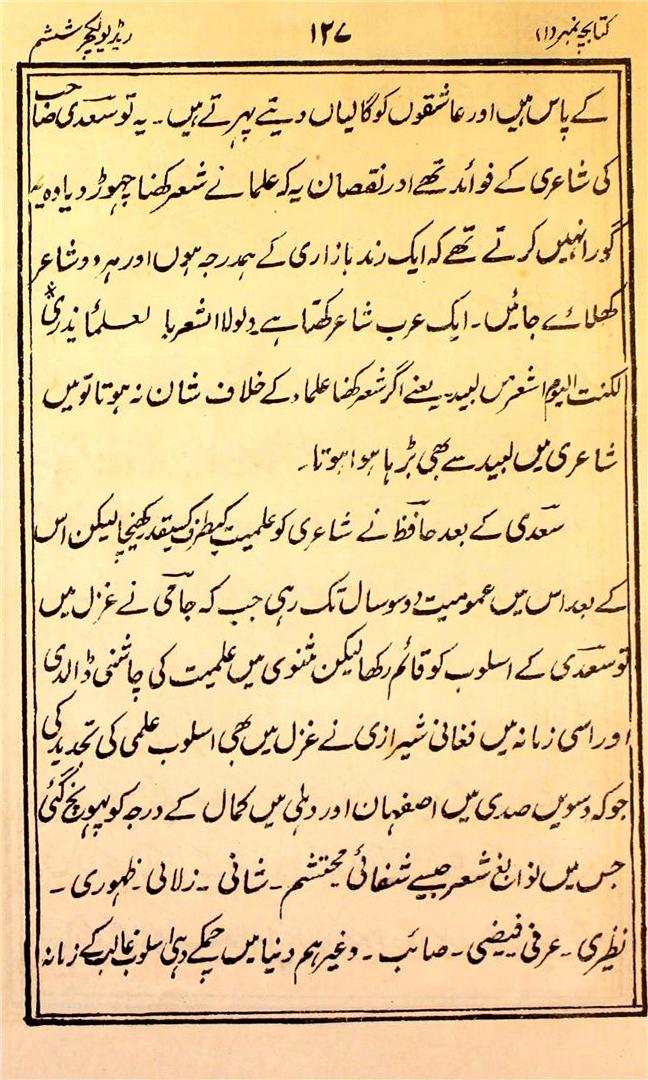 کتابچہ نمبر (۱) ۱۲۷ ریڈیو لیکچر ششم
کے پاس ہیں اور عاشقوں کو گالیاں دیتے پہرتے ہیں ۔ یہ تو سعدی صاحب
کی شاعری کے فوائد تھے اور نقصان یہ کہ علما نے شعر کھنا چہوڑ دیا وہ یہ
گورا نہیں کرتے تھے کہ ایک رند بازاری کے ہمدرجہ ہوں اور ہر دو شاعر
کھلائے جائیں ۔ ایک عرب شاعر کھتا ہے ولولا الشعر با لعلمائ یذری *
لکنت الیوم اشعر من لبید ۔ یعنے اگر شعر کھنا علماء کے خلاف شان نہ ہوتا تو میں
شاعری میں لبید سے بھی بڑہا ہوا ہوتا ۔
سعدی کے بعد حافظ نے شاعری کو علمیت کیطرف کسیقدر کھینچا لیکن اس
کے بعد اس میں عمومیت دوسو سال تک رہی جب کہ جامی نے غزل میں
تو سعدی کے اسلوب کو قائم رکھا لیکن مثنوی میں علمیت کی چاشنی ڈالدی
اور اسی زمانہ میں فغانی شیرازی نے غزل میں بھی اسلوب علمی کی تجدید کی
جو کہ دسویں صدی میں اصفہان اور دہلی میں کمال کے درجہ کو پہونچ گئی
جس میں نوابغ شعر جیسے شفائی محتشم ۔ شانی ۔ زلالی ۔ ظہوری ۔
نظیری ۔ عرفی فیضی ۔ صائب ۔ وغیر ہم دنیا میں چمکے وہی اسلوب غالب کے زمانہ